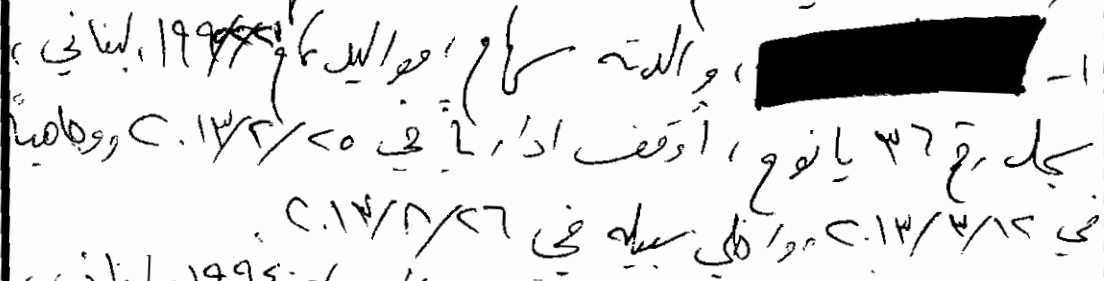 ١- ، والدته سهام ، مواليد عام ١٩٩٢ ، لبناني ،
سجل رقم ٣٦ يانوح ، أوقف ادارياً في ٢٠١٣/٢/٢٥ ووجاهياً
في ٢٠١٣/٣/١٢ واخلي سبيله في ٢٠١٣/٨/٢٦ .
لبناني ،